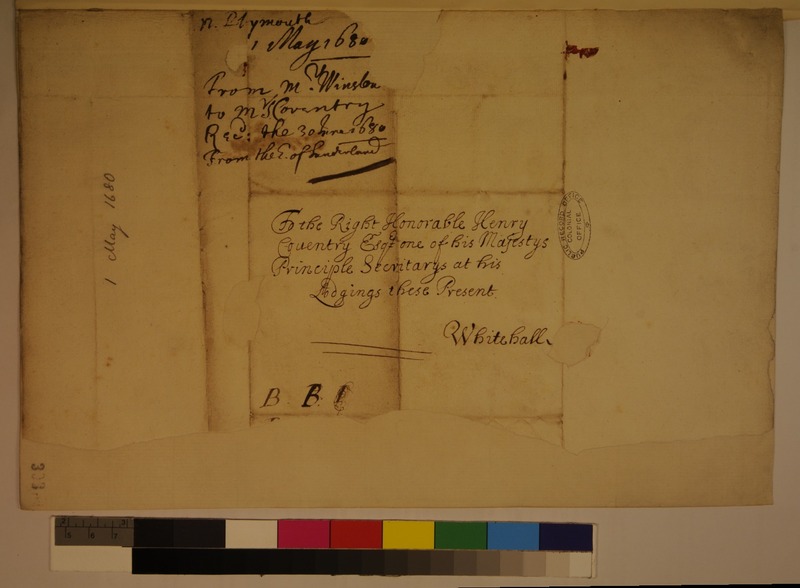 n. Plymouth
1 May 1680
From Mr Winslow
to Mr Coventry
Rec: the 30 June 1680
From the E. of Sunderland
To the Right Honorable Henry
Coventry Esqr one of his Majestys
Principle Secritarys at his
Lodgings these Present
Whitehall
B. B.
1 May 1680
PUBLIC RECORD OFFICE
COLONIAL
OFFICE